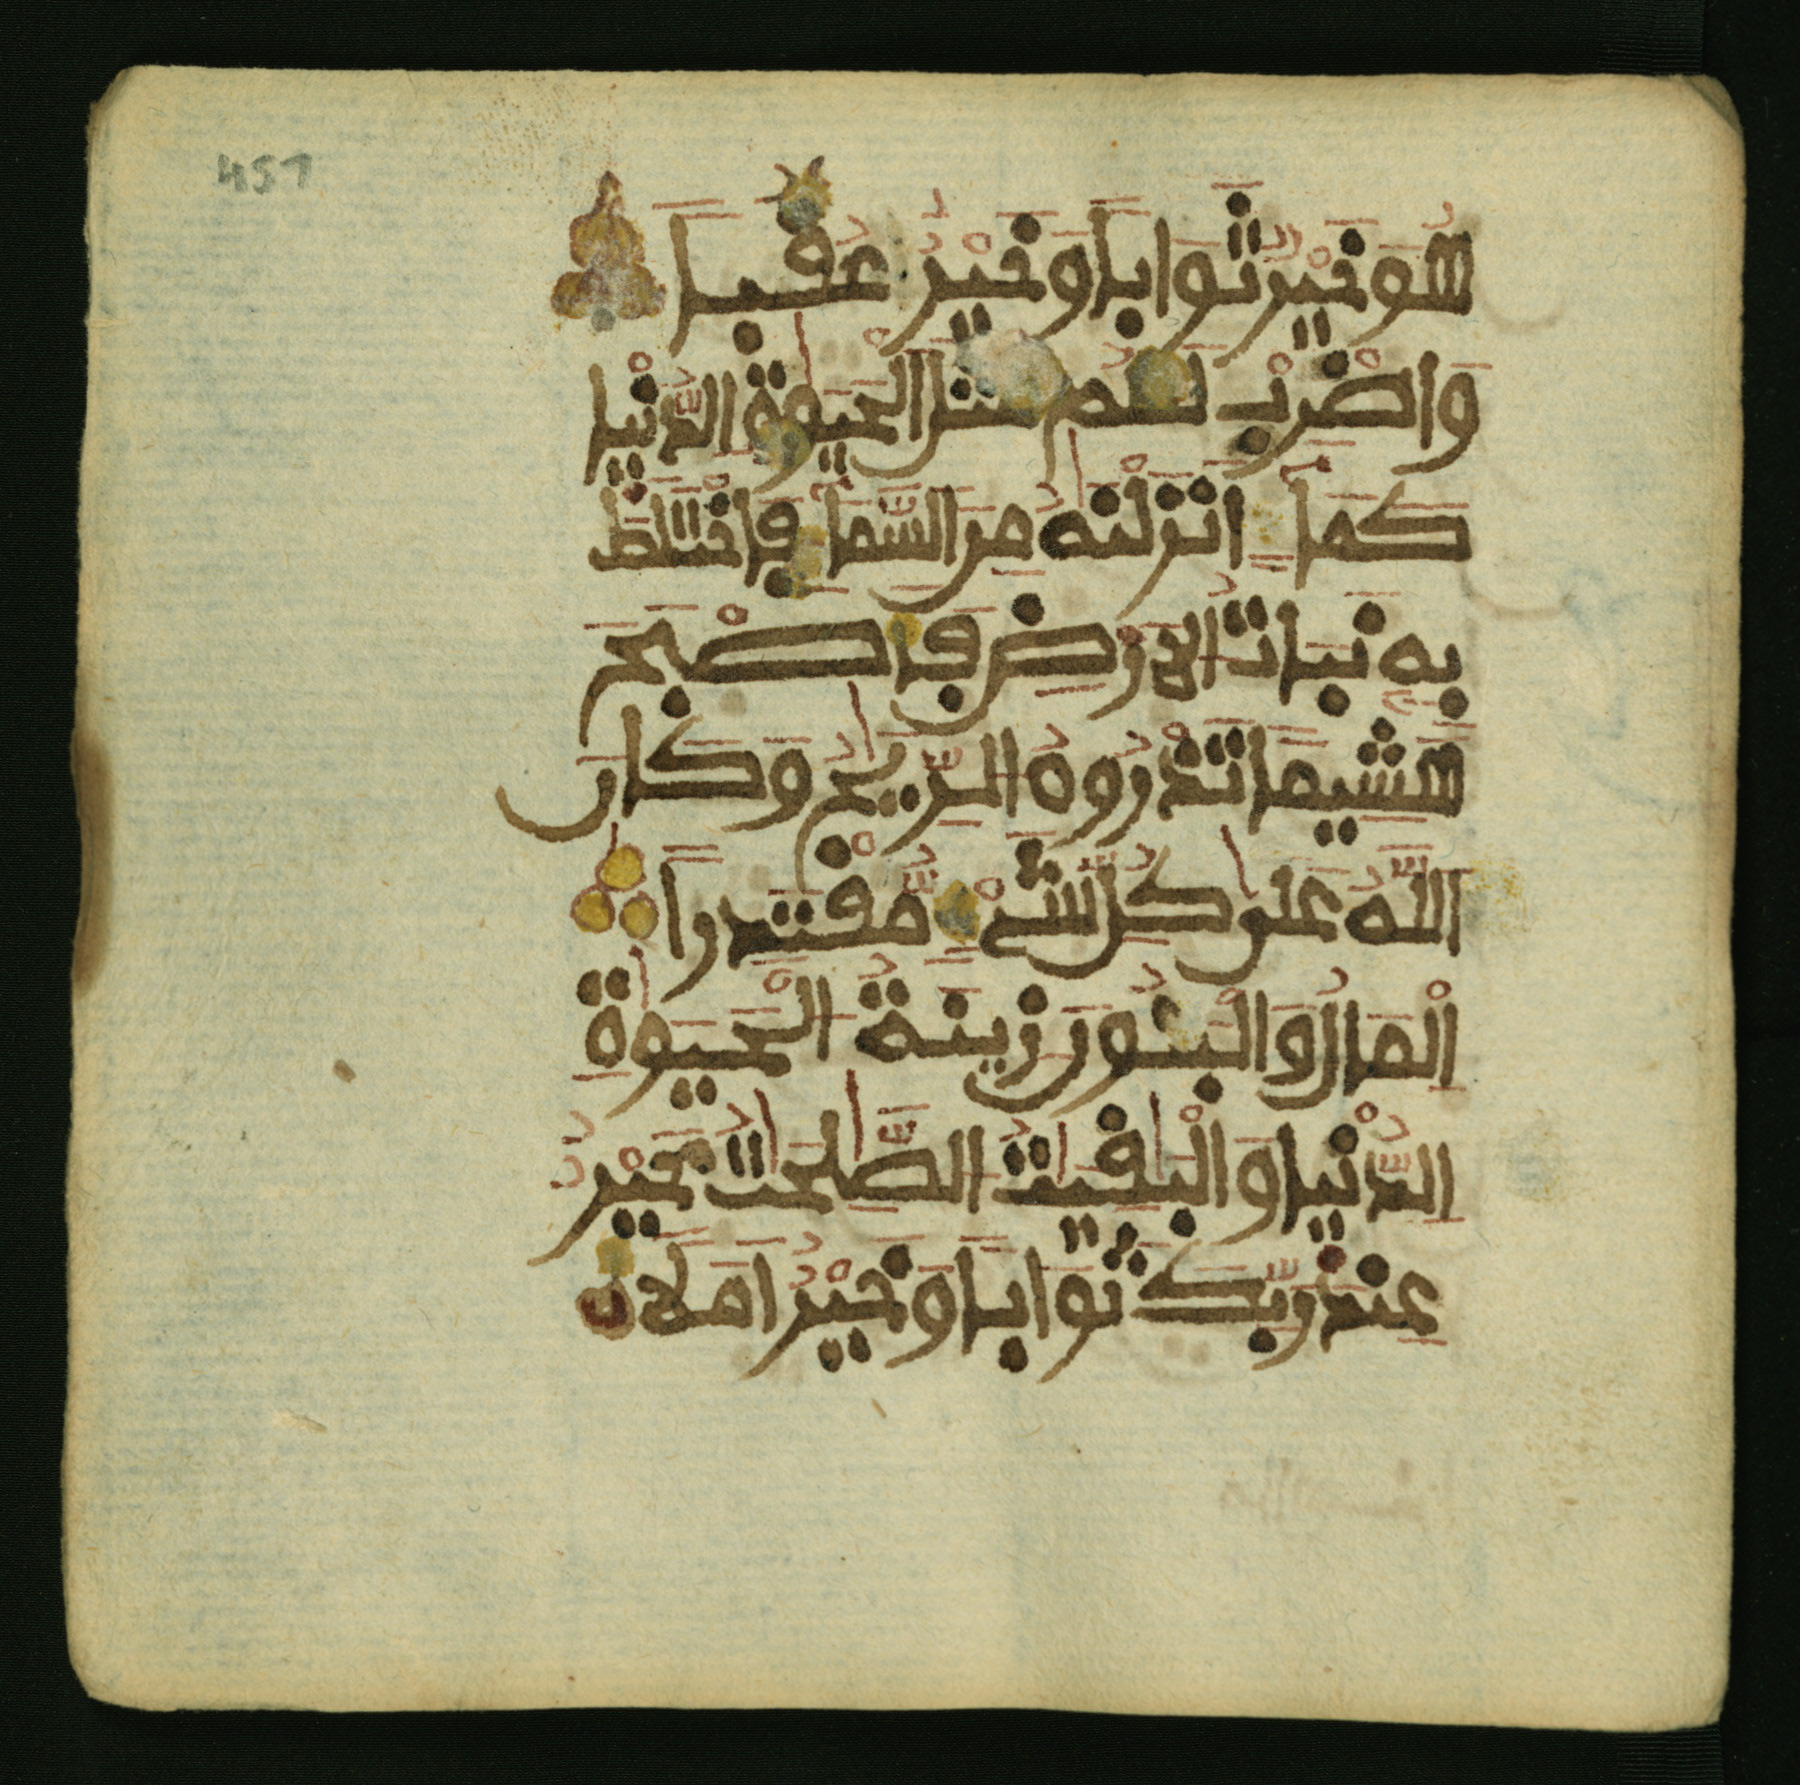 457
هُوَ خَيْرٌ ثَوَابًا وَخَيْرٌ عُقُبًا
وَاضْرِبْ لَهُم مَّثَلَ الْحَيَوٰةِ الدُّنْيَا
كَمَآ اَنزَلْنَٰهُ مِنَ السَّمَآ فَاخْتَلَطَ
بِهِ نَبَاتُ الَارْضِ فَأَصْبَحَ
هَشِيمًا تَذْرُوهُ الرِّيَٰحُ وَكَانَ
اللَّهُ عَلَىٰ كُلِّ شَےْءٍ مُّقْتَدِرًا
اَلْمَالُ وَالْبَنُونَ زِينَةُ الْحَيَوٰةِ
اِلدُّنْيَا وَالْبَٰقِيَٰتُ الصَّٰلِحَٰتُ خَيْرٌ
عِندَ رَبِّكَ ثَوَابًا وَخَيْرٌ اَمَلًا